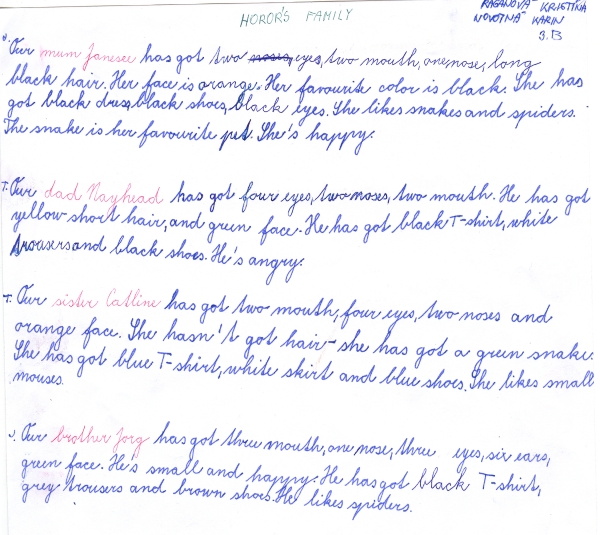 HOROR'S FAMILY
RAGANOVÁ KRISTÍNA
NOVOTNÁ KARIN
3.B
J. Our mum Janesee has got two noses, eyes, two mouth, one nose, long
black hair. Her face is orange. Her favourite color is black. She has
got black dress, black shoes, black eyes. She likes snakes and spiders.
The snake is her favourite pet. She's happy.
T. Our dad Nayhead has got four eyes, two noses, two mouth. He has got
yellow short hair, and green face. He has got black T-shirt, white
trousers and black shoes. He's angry.
T. Our sister Catline has got two mouth, four eyes, two noses and
orange face. She hasn't got hair - she has got a green snake.
She has got blue T-shirt, white skirt and blue shoes. She likes small
mouses.
J. Our brother Jorg has got three mouth, one nose, three eyes, six ears,
green face. He's small and happy. He has got black T-shirt,
grey trousers and brown shoes. He likes spiders.